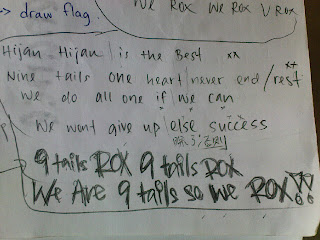 --> draw flag.
We ROX We ROX V ROX
Hijan Hijan | is the Best xx
Nine tails one heart | never end / rest xx
We do all one if we can
We wont give up | else success
9 tails ROX 9 tails ROX
We Are 9 tails so we ROX!!